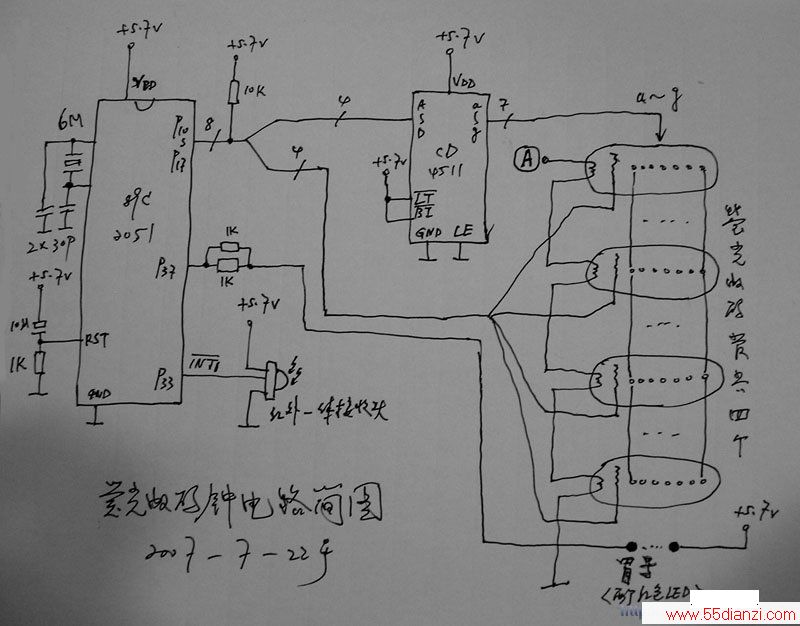 +5.7v
+5.7v
+5.7v
VDD
10K
VDD
6M
P10
S
P17
8
4
4
A
S
D
a
S
g
7
a~g
CD
4511
89C
2051
+5.7v
LT
BI
GND LE
A
2×30P
+5.7v
P37
1K
1K
+5.7v
10U
1K
RST
P33
INT1
GND
红外一体接收头
荧光数码管共四个
荧光数码钟电路简图
2007-7-22号
+5.7v
冒号
(两个红色LED)
www.55dianzi.com